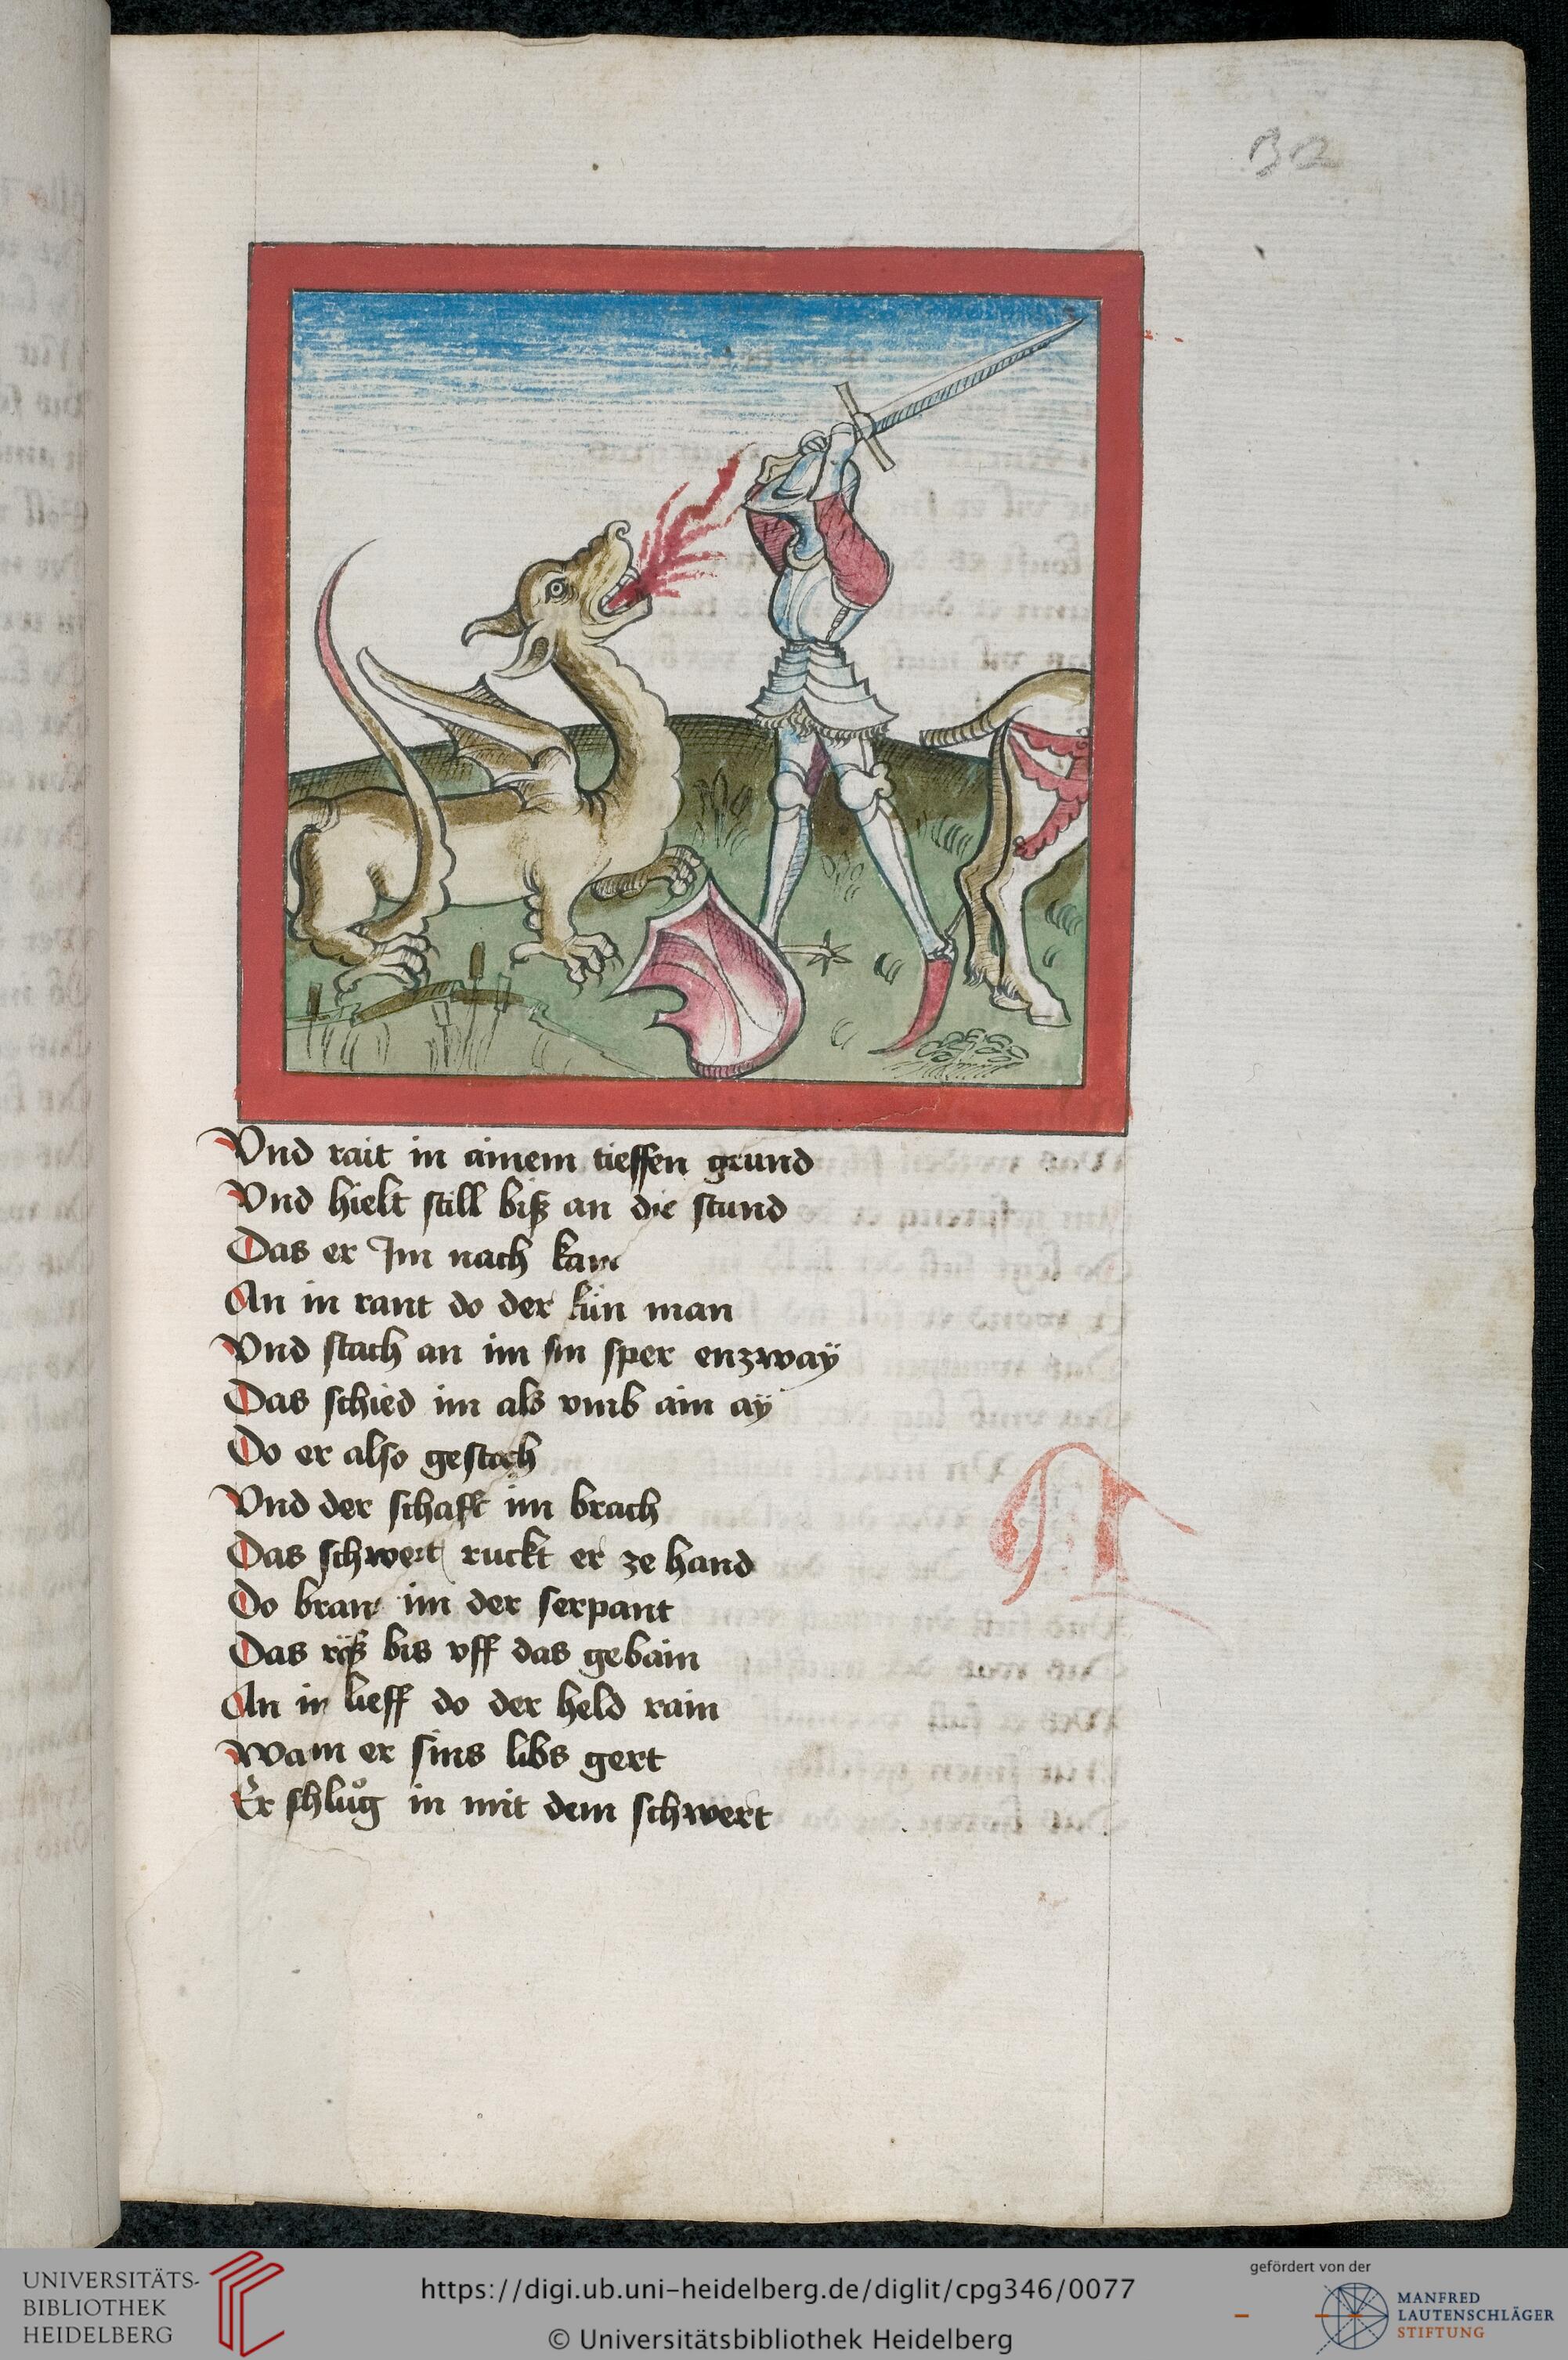 32
Vnd rait in ainem tieffen grund
Vnd hielt still biß an die stund
Das er Im nach kam
An in rant do der kün man
Vnd stach an im sin sper enzwaÿ
Das schied im als vmb ain aÿ
Do er also gestach
Vnd der schafft im brach
Das schwert ruckt er ze hand
Do bran im der serpant
Das röß bis vff das gebain
An in lieff do der held rain
Wann er sins libs gert
Er schlůg in mit dem schwert
UNIVERSITÄTS-
BIBLIOTHEK
HEIDELBERG
https://digi.ub.uni-heidelberg.de/diglit/cpg346/0077
© Universitätsbibliothek Heidelberg
gefördert von der
MANFRED
LAUTENSCHLÄGER
STIFTUNG